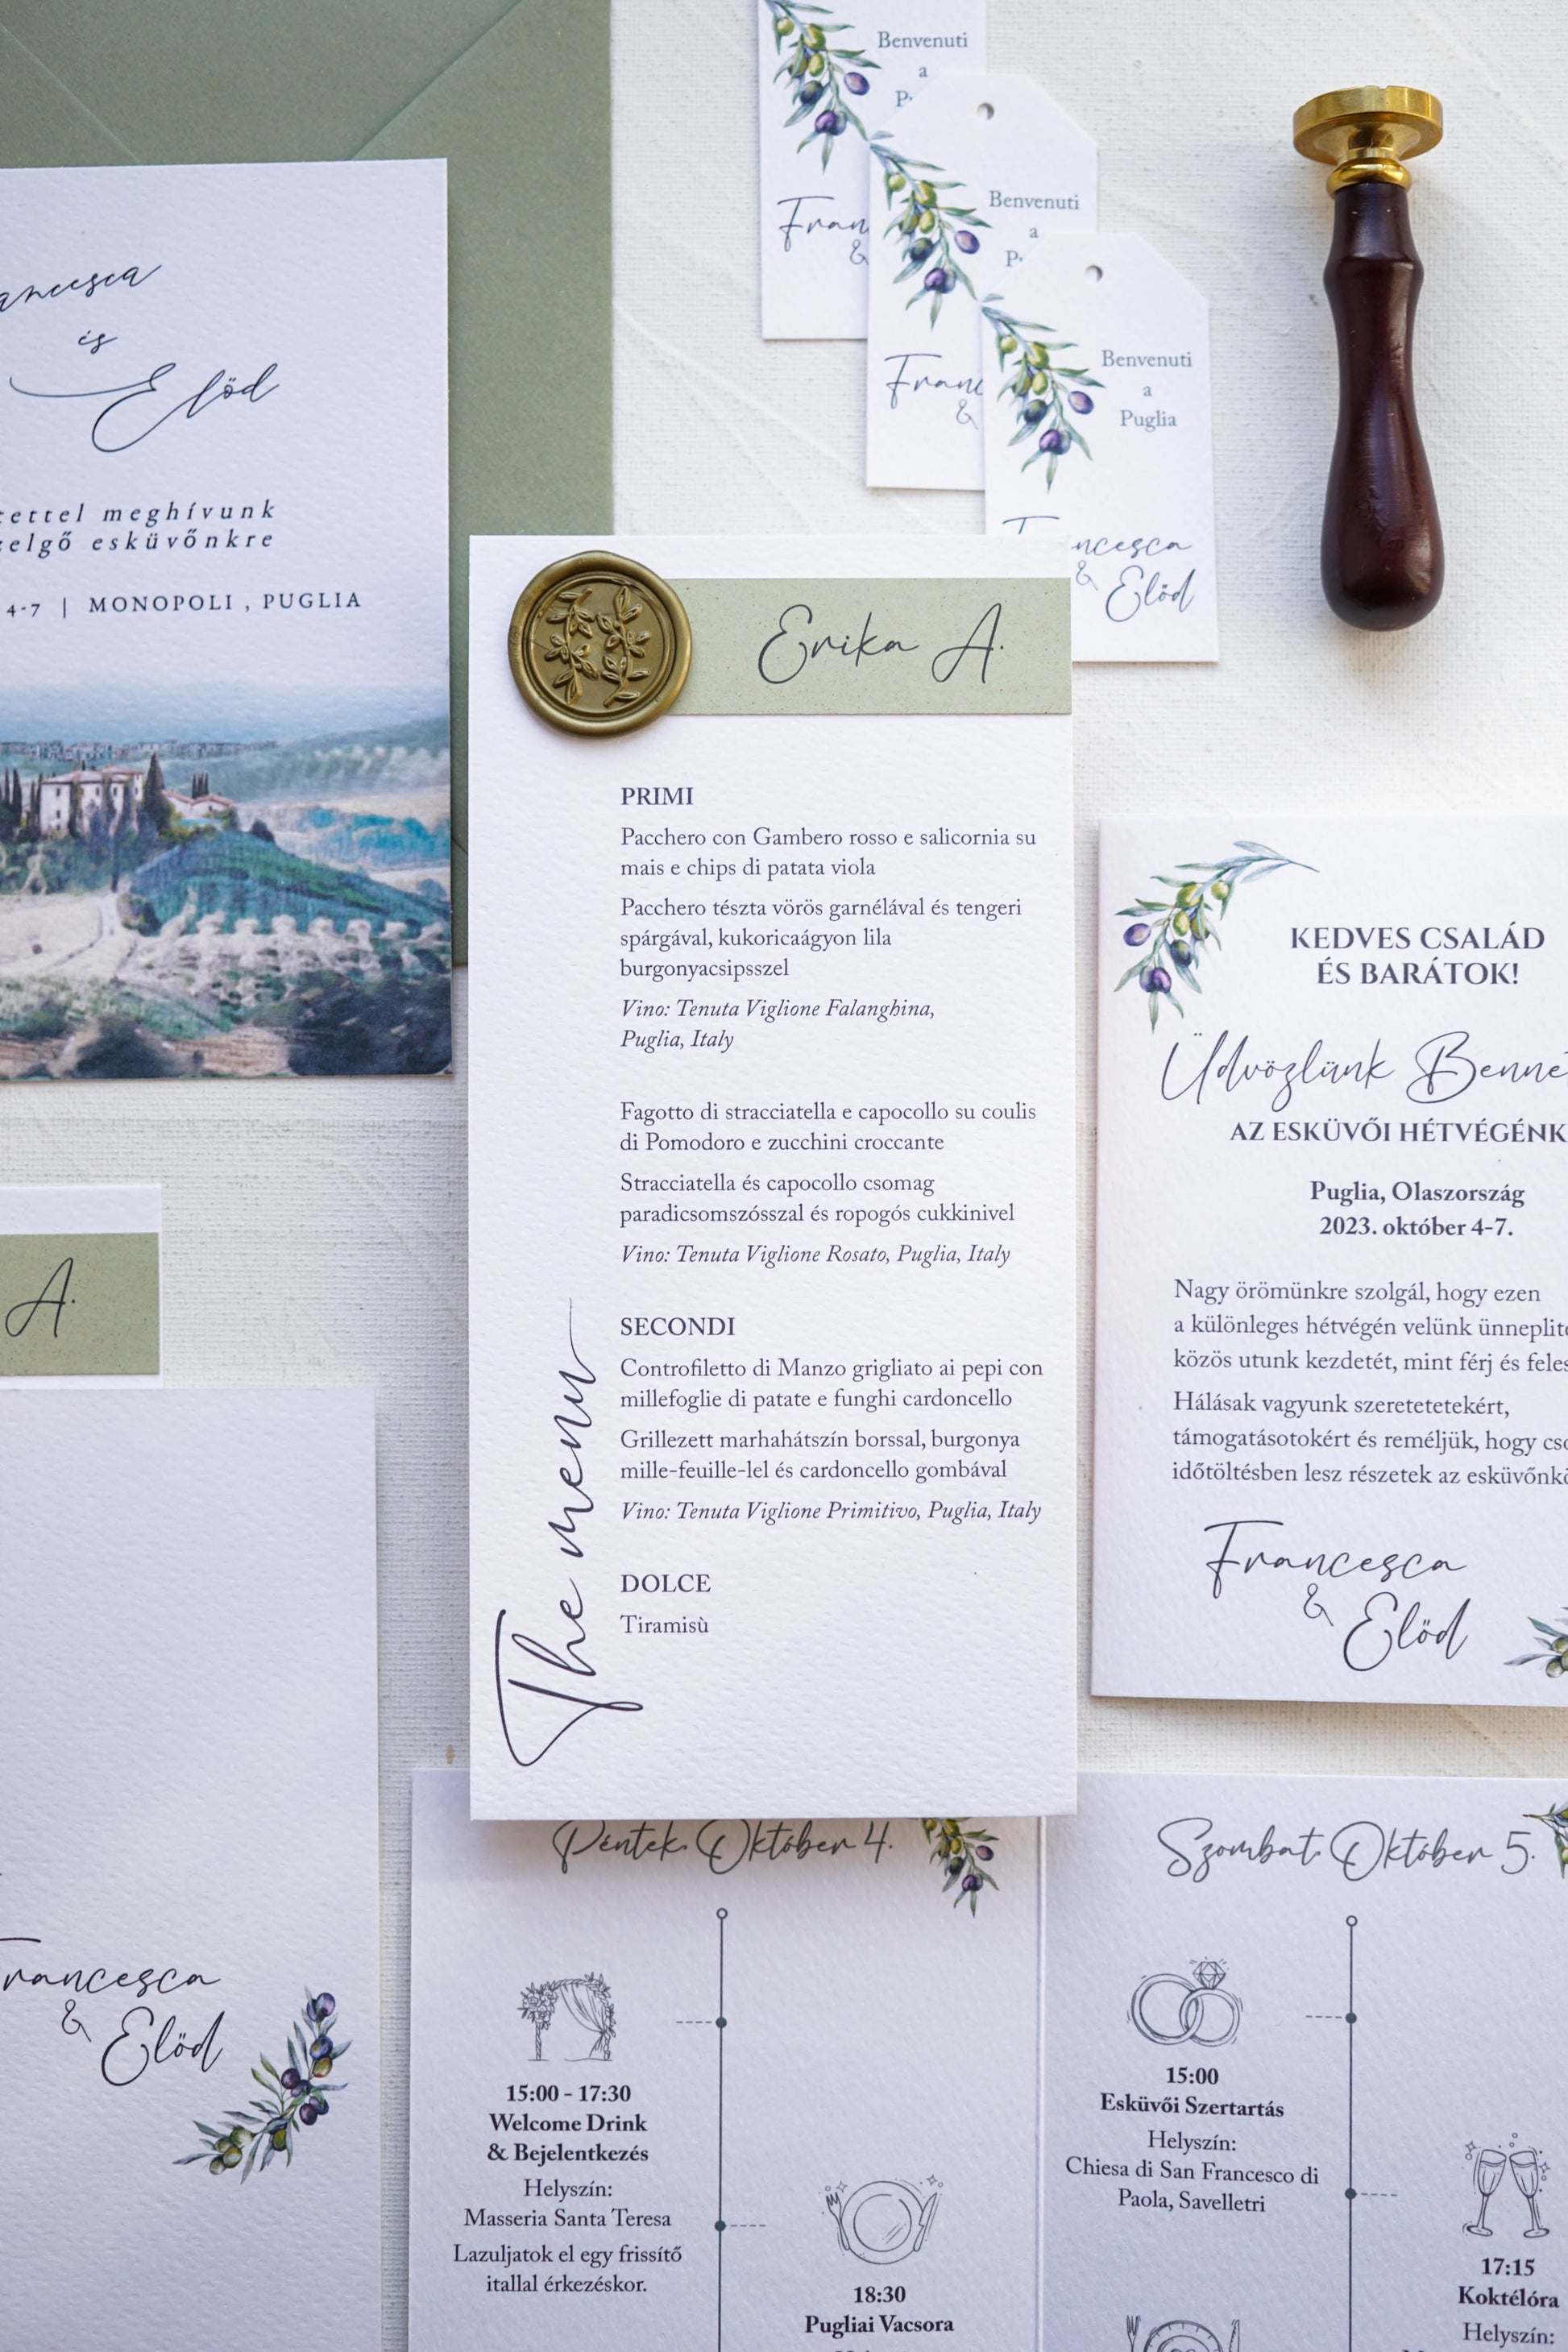 és
Elöd
meghívunk
esküvőnkre
4-7 | MONOPOLI , PUGLIA
Benvenuti
a
&
Benvenuti
a
&
Benvenuti
a
Puglia
& Elöd
Erika A.
PRIMI
Pacchero con Gambero rosso e salicornia su
mais e chips di patata viola
Pacchero tészta vörös garnélával és tengeri
spárgával, kukoricaágyon lila
burgonyacsipsszel
Vino: Tenuta Viglione Falanghina,
Puglia, Italy
Fagotto di stracciatella e capocollo su coulis
di Pomodoro e zucchini croccante
Stracciatella és capocollo csomag
paradicsomszósszal és ropogós cukkinivel
Vino: Tenuta Viglione Rosato, Puglia, Italy
SECONDI
Controfiletto di Manzo grigliato ai pepi con
millefoglie di patate e funghi cardoncello
Grillezett marhahátszín borssal, burgonya
mille-feuille-lel és cardoncello gombával
Vino: Tenuta Viglione Primitivo, Puglia, Italy
DOLCE
Tiramisù
The menu
A.
KEDVES CSALÁD
ÉS BARÁTOK!
Üdvözlünk
AZ ESKÜVŐI
Puglia, Olaszország
2023. október 4-7.
Nagy örömünkre szolgál, hogy ezen
a különleges hétvégén velünk
közös utunk kezdetét, mint férj és
Hálásak vagyunk szeretetetekért,
támogatásotokért és reméljük, hogy
időtöltésben lesz részetek az
Francesca
&
Elöd
Francesca
&
Elöd
Péntek, Október 4.
15:00 - 17:30
Welcome Drink
& Bejelentkezés
Helyszín:
Masseria Santa Teresa
Lazuljatok el egy frissítő
itallal érkezéskor.
18:30
Pugliai Vacsora
Szombat, Október 5.
15:00
Esküvői Szertartás
Helyszín:
Chiesa di San Francesco di
Paola, Savelletri
17:15
Koktélóra
Helyszín: